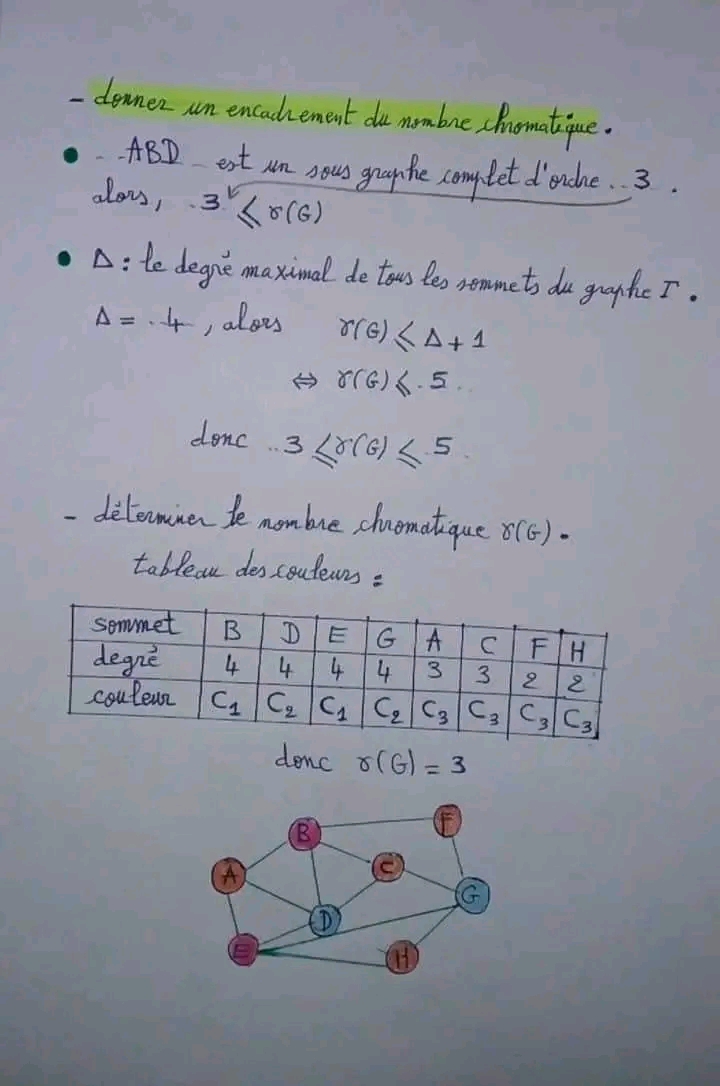 - donner un encadrement du nombre chromatique.
• ..ABD.. est un sous graphe complet d'ordre ..3 .
alors, .3 ⩽ γ(G)
• Δ : le degré maximal de tous les sommets du graphe Γ.
Δ = .4 , alors γ(G) ⩽ Δ + 1
⇔ γ(G) ⩽ .5..
donc ..3 ⩽ γ(G) ⩽ .5..
- déterminer le nombre chromatique γ(G).
tableau des couleurs :
sommet B D E G A C F H
degré 4 4 4 4 3 3 2 2
couleur C₁ C₂ C₁ C₂ C₃ C₃ C₃ C₃
donc γ(G) = 3
B F
A C
G
D
E H